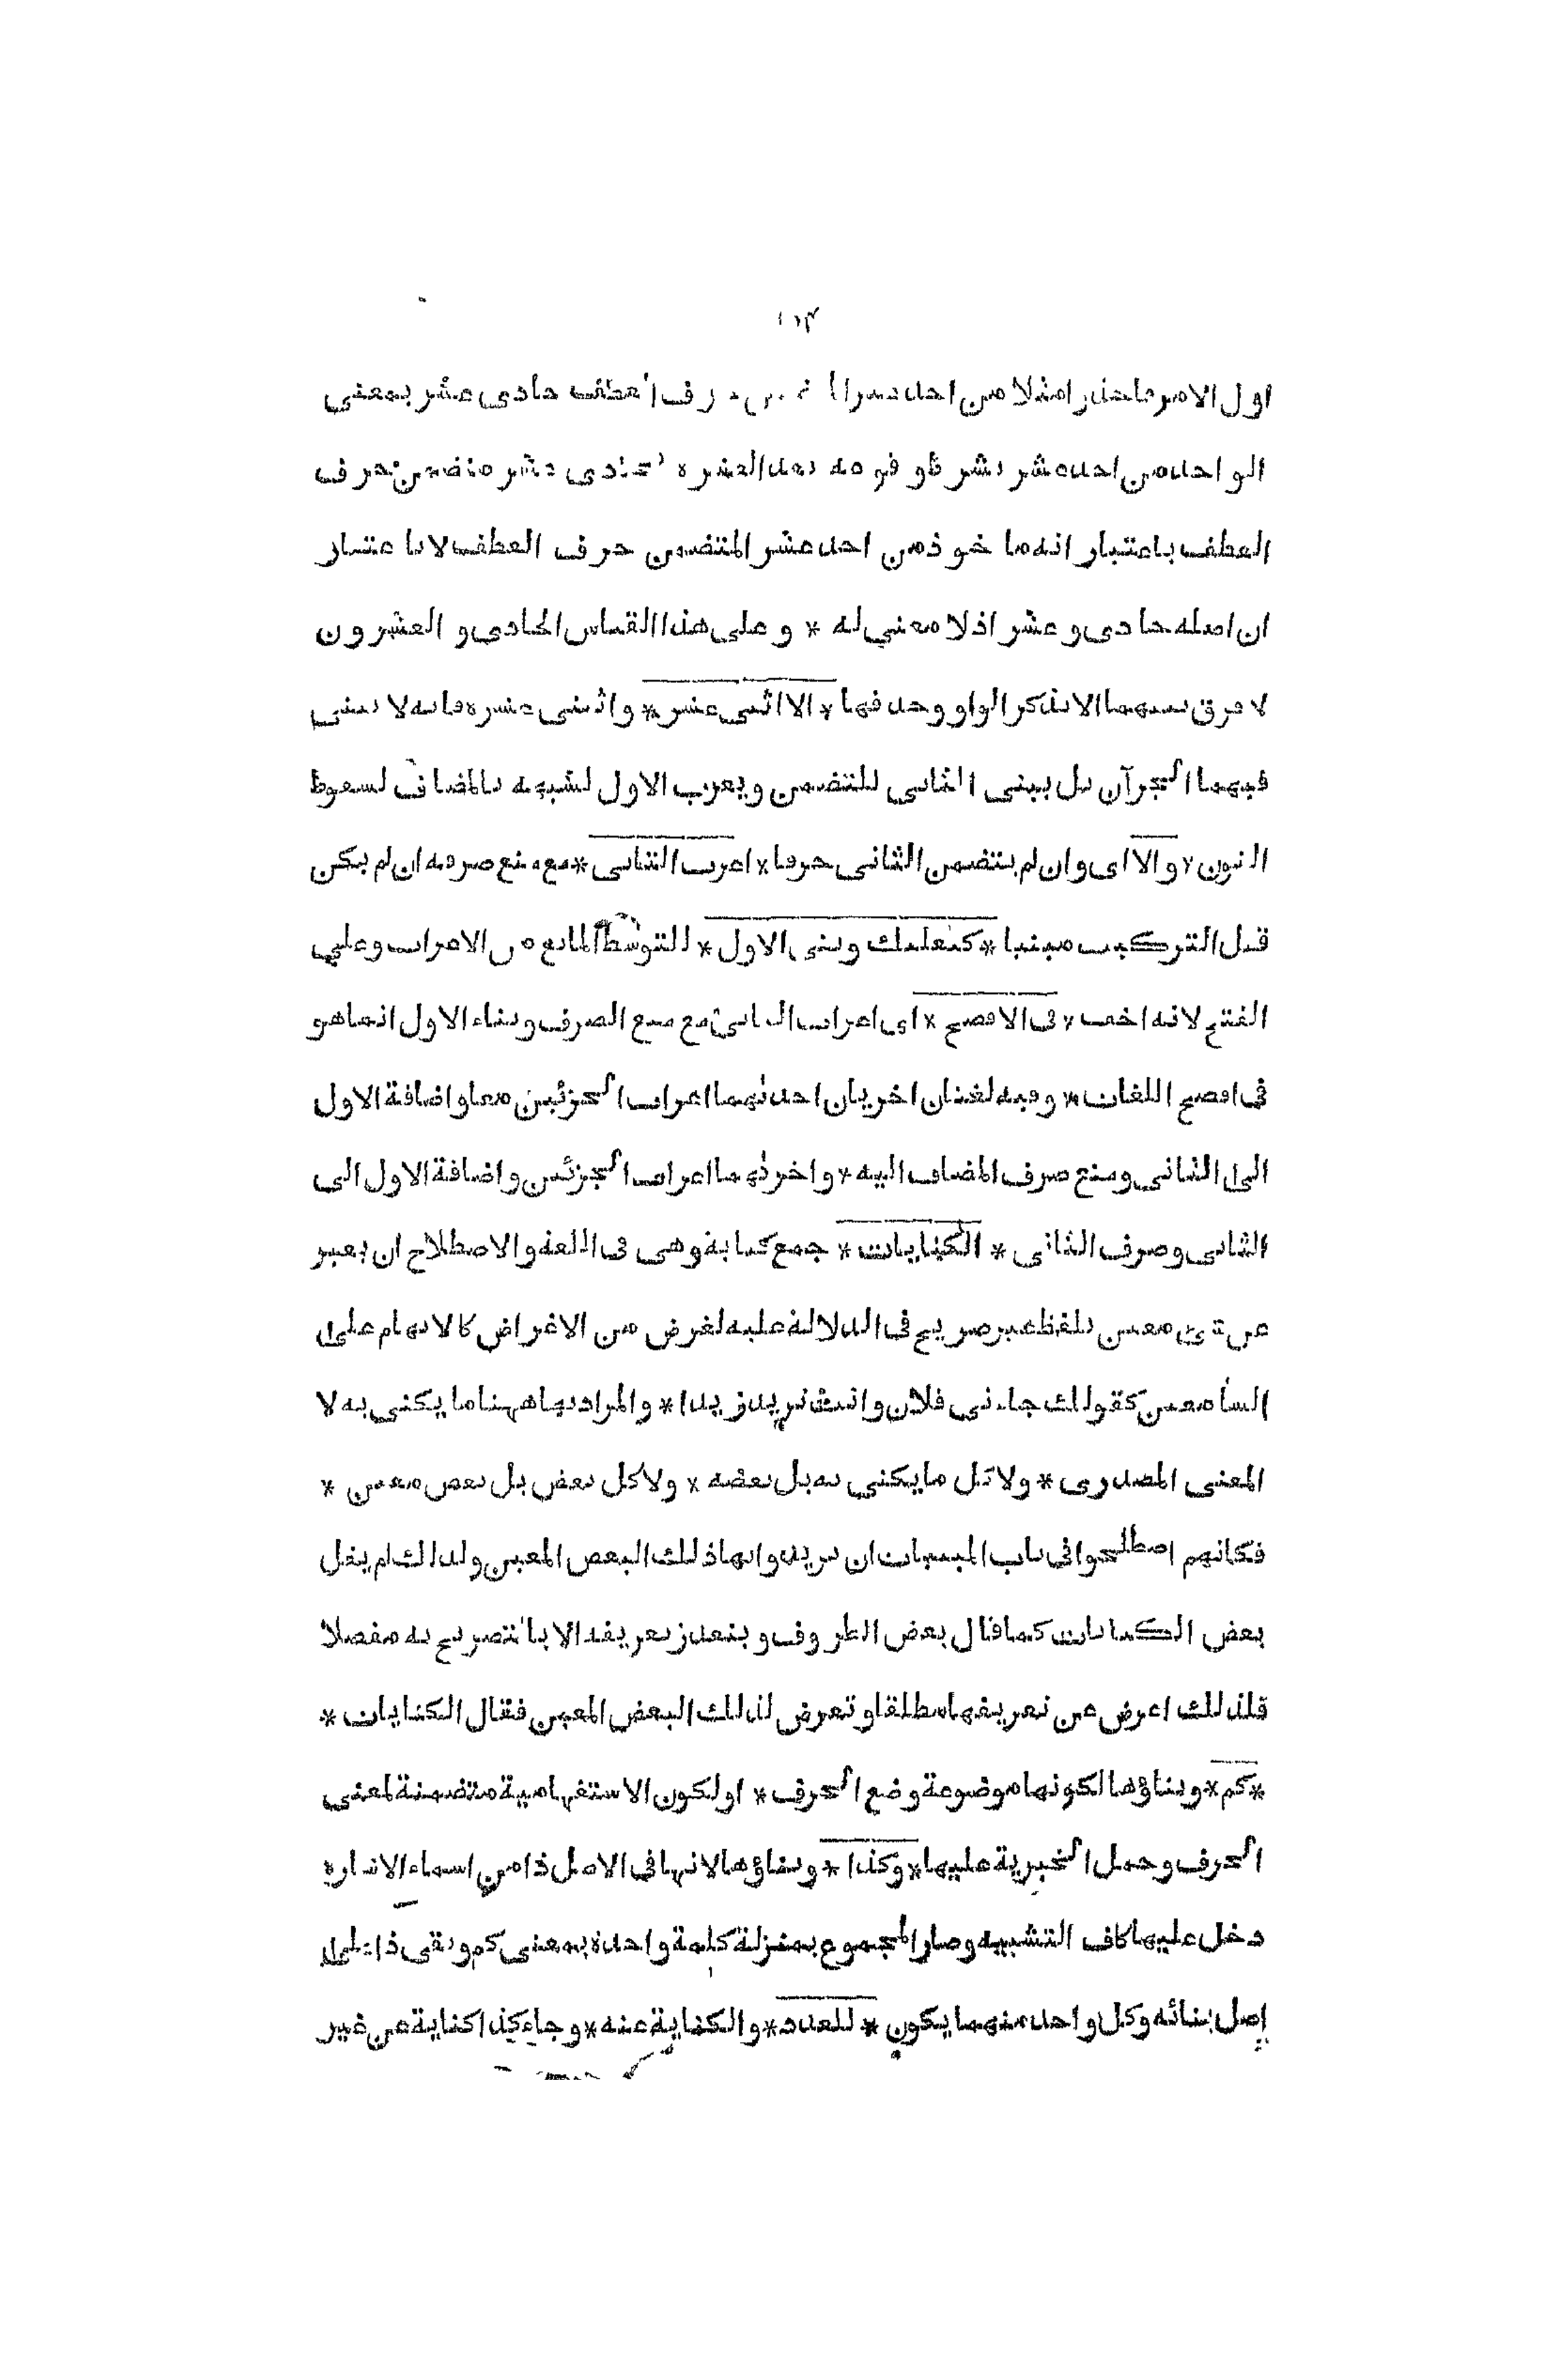 اول الامر ماحذر امثلا من احد عشر المتضمن حرف العطف حادى عشر بمعنى
الواحد من احد عشر بشرط وقوعه بعد العشرة فحادى عشر متضمن حرف
العطف باعتبار انه ماخوذ من احد عشر المتضمن حرف العطف لا باعتبار
ان اصله حادى وعشر اذلا معنى له * وعلى هذا القياس الحادى والعشرون
لا فرق بينهما الا بذكر الواو وحذفها * الا اثنى عشر * واثنتى عشرة فانه لا يبنى
فيهما الجزآن بل يبنى الثانى للتضمن ويعرب الاول لشبهه بالمضاف لسقوط
النون * والا اى وان لم يتضمن الثانى حرفا * اعرب الثانى * مع منع صرفه ان لم يكن
قبل التركيب مبنيا * كبعلبك وبنى الاول * للتوسط المانع من الاعراب وعلى
الفتح لانه اخف * فى الافصح * اى اعراب الثانى مع منع الصرف وبناء الاول انما هو
فى افصح اللغات * وفيه لغتان اخريان احدٰيهما اعراب الجزئين معا واضافة الاول
الى الثانى ومنع صرف المضاف اليه * واخرٰيهما اعراب الجزئين واضافة الاول الى
الثانى وصرف الثانى * الكنايات * جمع كناية وهى فى اللغة والاصطلاح ان يعبر
عن شئ معين بلفظ غير صريح فى الدلالة عليه لغرض من الاغراض كالابهام على
السامعين كقولك جاءنى فلان وانت تريد زيدا * والمراد بها ههنا ما يكنى به لا
المعنى المصدرى * ولا كل ما يكنى به بل بعضه * ولا كل بعض بل بعض معين *
فكانهم اصطلحوا فى باب المبنيات ان يريدوا بها ذلك البعض المعين ولذلك لم يقل
بعض الكنايات كما قال بعض الظروف ويتعذر تعريفه الا بالتصريح به مفصلا
فلذلك اعرض عن تعريفها مطلقا وتعرض لذلك البعض المعين فقال الكنايات *
* كم * وبناؤها لكونها موضوعة وضع الحرف * او لكون الاستفهامية متضمنة لمعنى
الحرف وحمل الخبرية عليها * وكذا * وبناؤها لانها فى الاصل ذا من اسماء الاشارة
دخل عليها كاف التشبيه وصار المجموع بمنزلة كلمة واحدة بمعنى كم وبقى ذا على
اصل بنائه وكل واحد منهما يكون * للعدد * والكناية عنه * وجاء كذا كناية عن غير